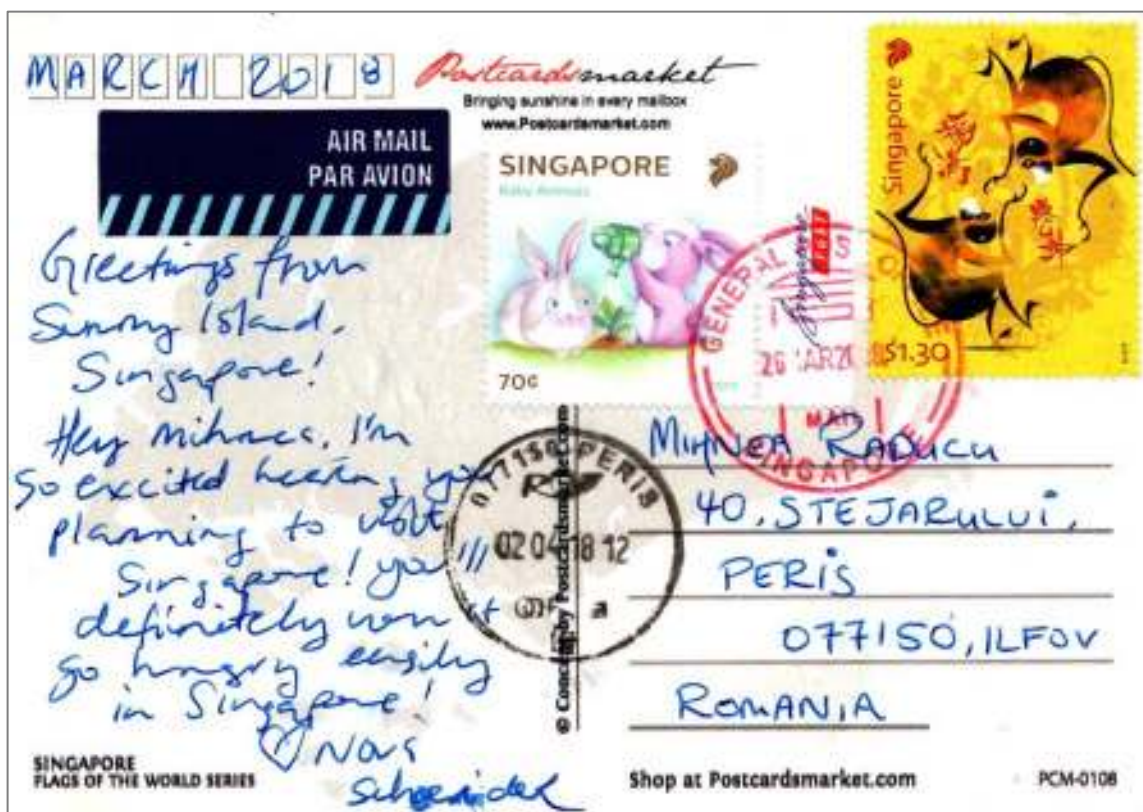 MARCH 2018
Postcardsmarket
Bringing sunshine in every mailbox
www.Postcardsmarket.com
AIR MAIL
PAR AVION
SINGAPORE
Baby Animals
70¢
Singapore
POST
Singapore
$1.30
GENERAL
26 MAR 20
MAIL
SINGAPORE
Greetings from
Sunny Island,
Singapore!
Hey Mihnea, I'm
so excited hearing you
planning to visit
Singapore! you'll
definitely won't
go hungry easily
in Singapore!
♡ Nova
077150 PERIS
02 04 18 12
a
© Concept by Postcardsmarket.com
MIHNEA RADUCU
40, STEJARULUI,
PERIS
077150, ILFOV
ROMANIA
SINGAPORE
FLAGS OF THE WORLD SERIES
Shop at Postcardsmarket.com
PCM-0108